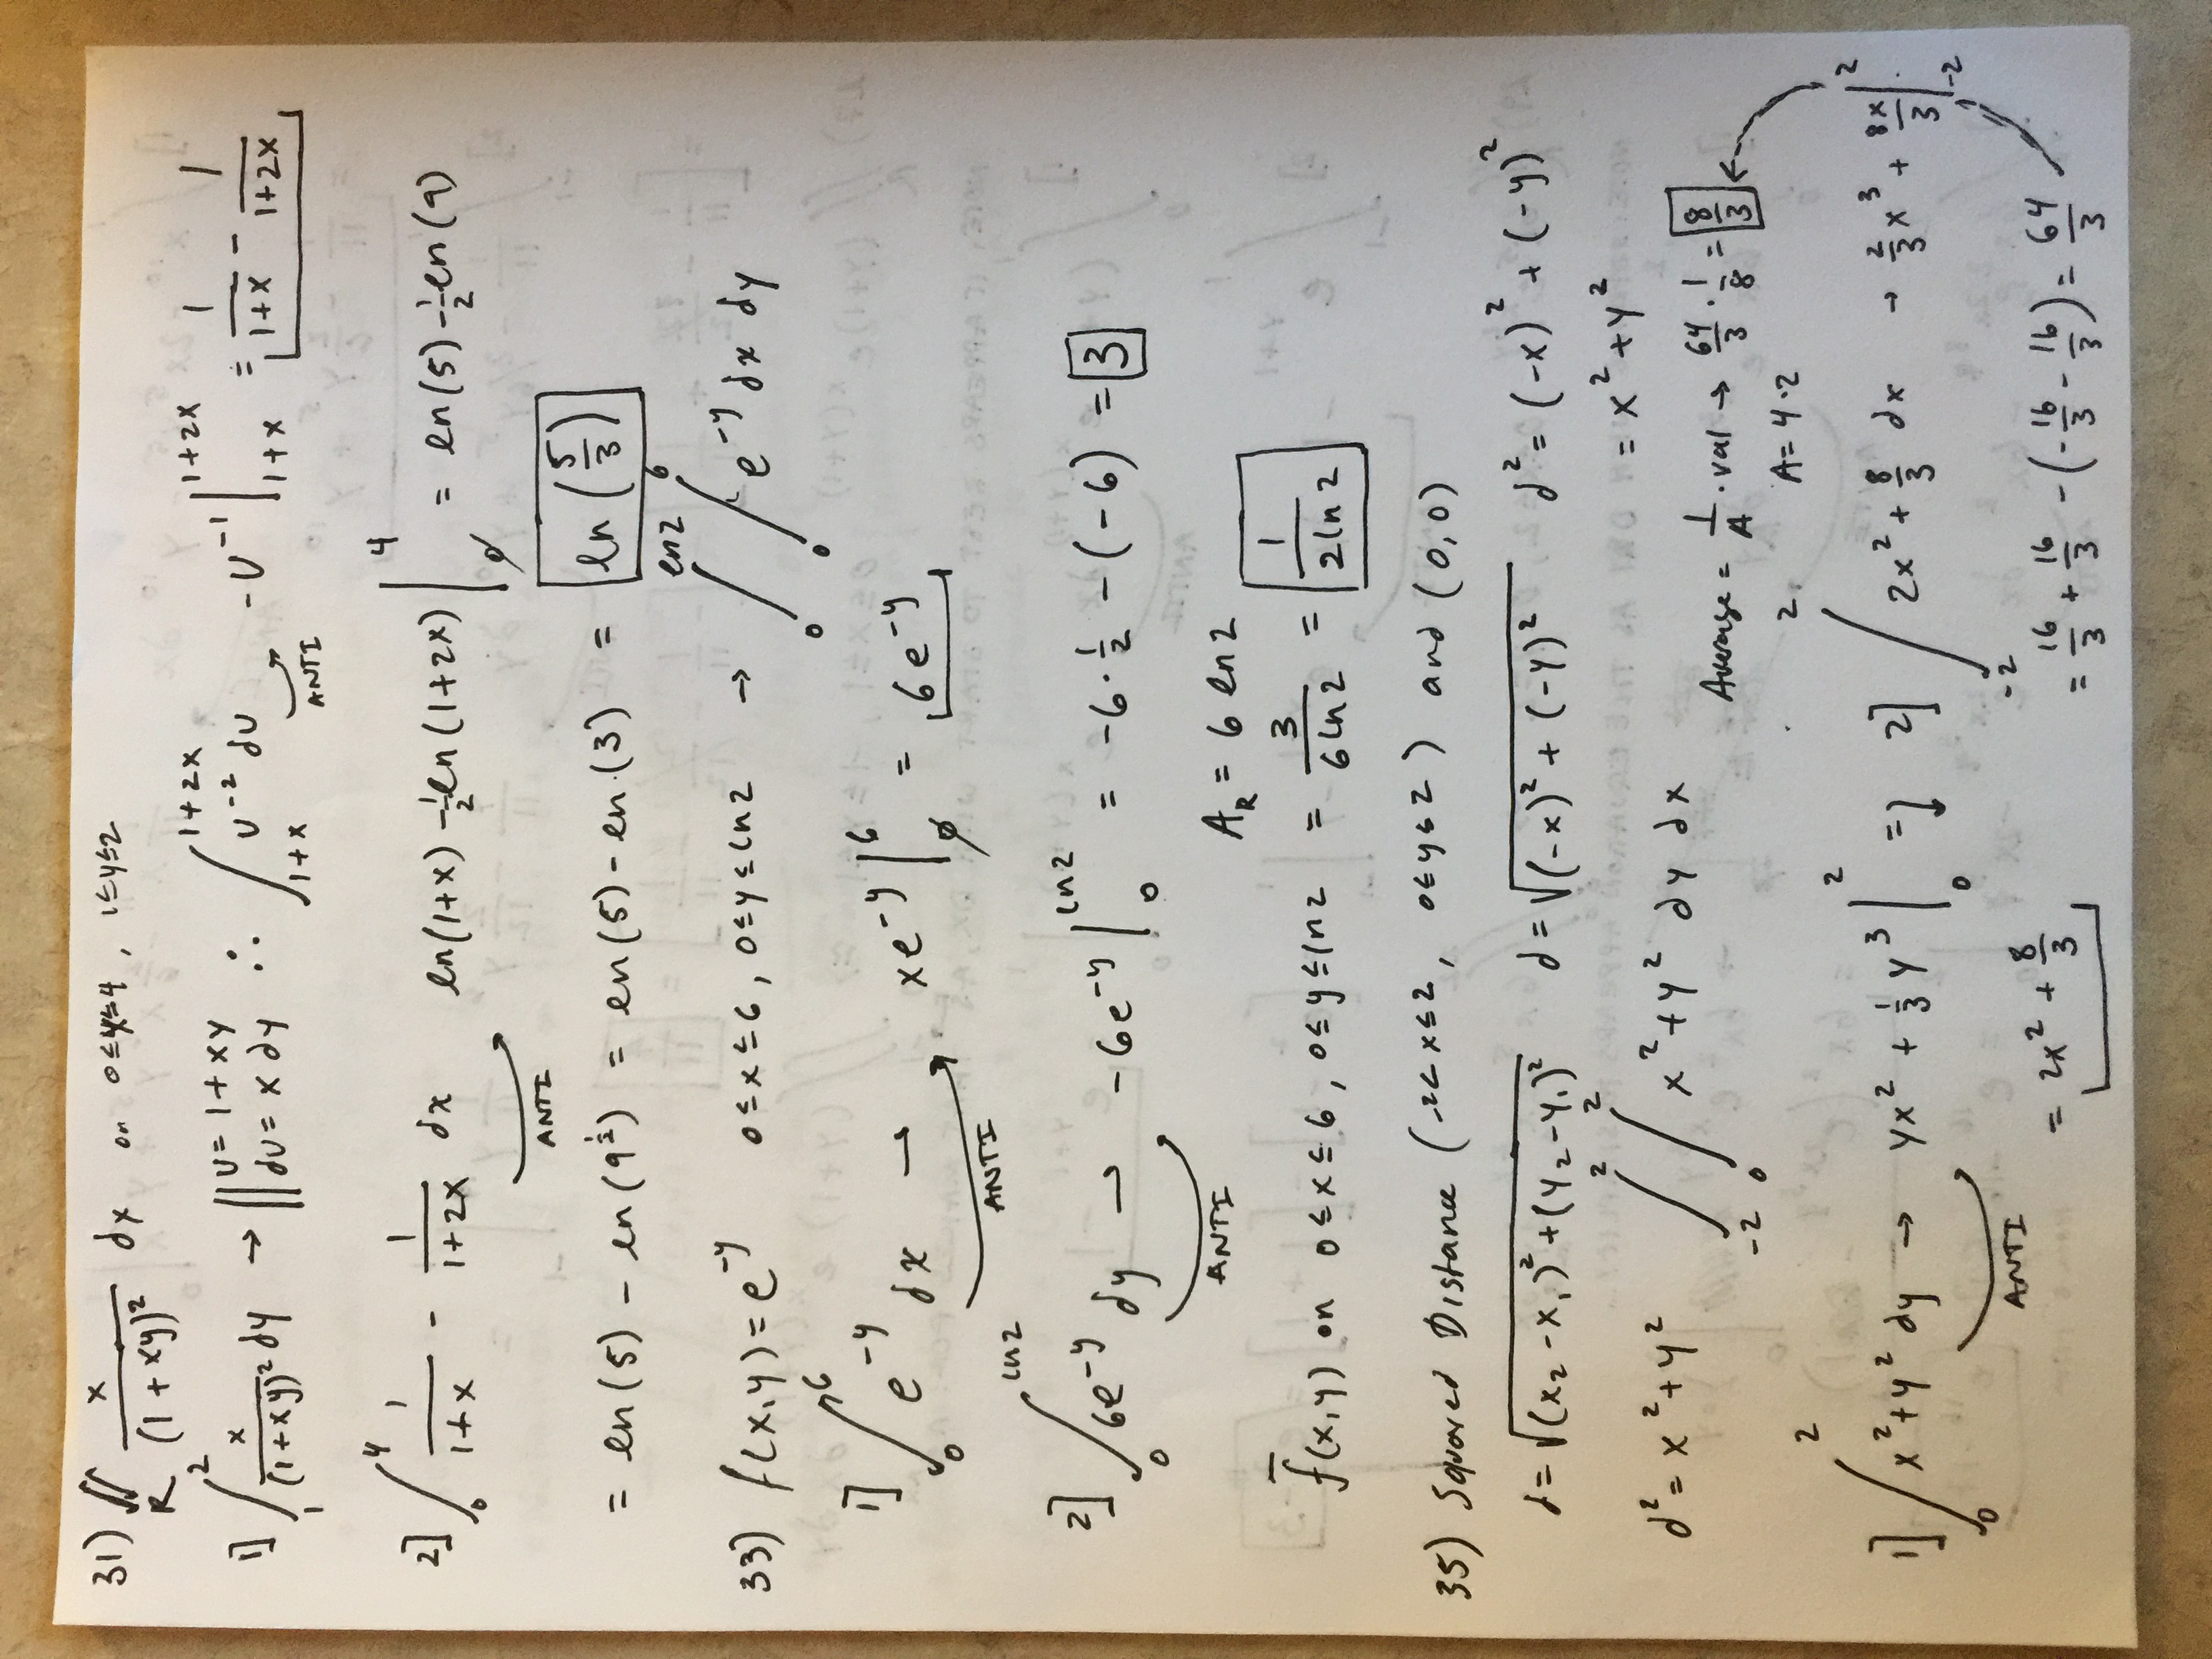 31) ∬_R x/(1+xy)² dx on 0≤x≤4, 1≤y≤2
1] ∫₁² x/(1+xy)² dy → || u = 1+xy du = x dy ∴ ∫_{1+x}^{1+2x} u⁻² du ANTI -u⁻¹ |_{1+x}^{1+2x} = 1/(1+x) - 1/(1+2x)
2] ∫₀⁴ 1/(1+x) - 1/(1+2x) dx ANTI ln(1+x) - ½ln(1+2x) |₀⁴ = ln(5) - ½ln(9)
= ln(5) - ln(9^½) = ln(5) - ln(3) = ln(5/3)
33) f(x,y) = e^{-y} 0≤x≤6, 0≤y≤ln2 → ∫₀^{ln2} ∫₀⁶ e^{-y} dx dy
1] ∫₀⁶ e^{-y} dx → ANTI xe^{-y} |₀⁶ = 6e^{-y}
2] ∫₀^{ln2} 6e^{-y} dy → ANTI -6e^{-y} |₀^{ln2} = -6·½ - (-6) = 3
A_R = 6 ln2
f̄(x,y) on 0≤x≤6, 0≤y≤ln2 = 3/(6ln2) = 1/(2ln2)
35) Squared Distance (-2≤x≤2, 0≤y≤2) and (0,0)
d = √((x₂-x₁)²+(y₂-y₁)²) d = √((-x)²+(-y)²) d² = (-x)²+(-y)²
= x²+y²
d² = x²+y² ∫₋₂² ∫₀² x²+y² dy dx
Average = 1/A · val → 64/3 · 1/8 = 8/3
A = 4·2
1] ∫₀² x²+y² dy → ANTI yx² + ⅓y³ |₀² =
= 2x² + 8/3
2] ∫₋₂² 2x² + 8/3 dx → ⅔x³ + 8x/3 |₋₂²
= 16/3 + 16/3 - (-16/3 - 16/3) = 64/3